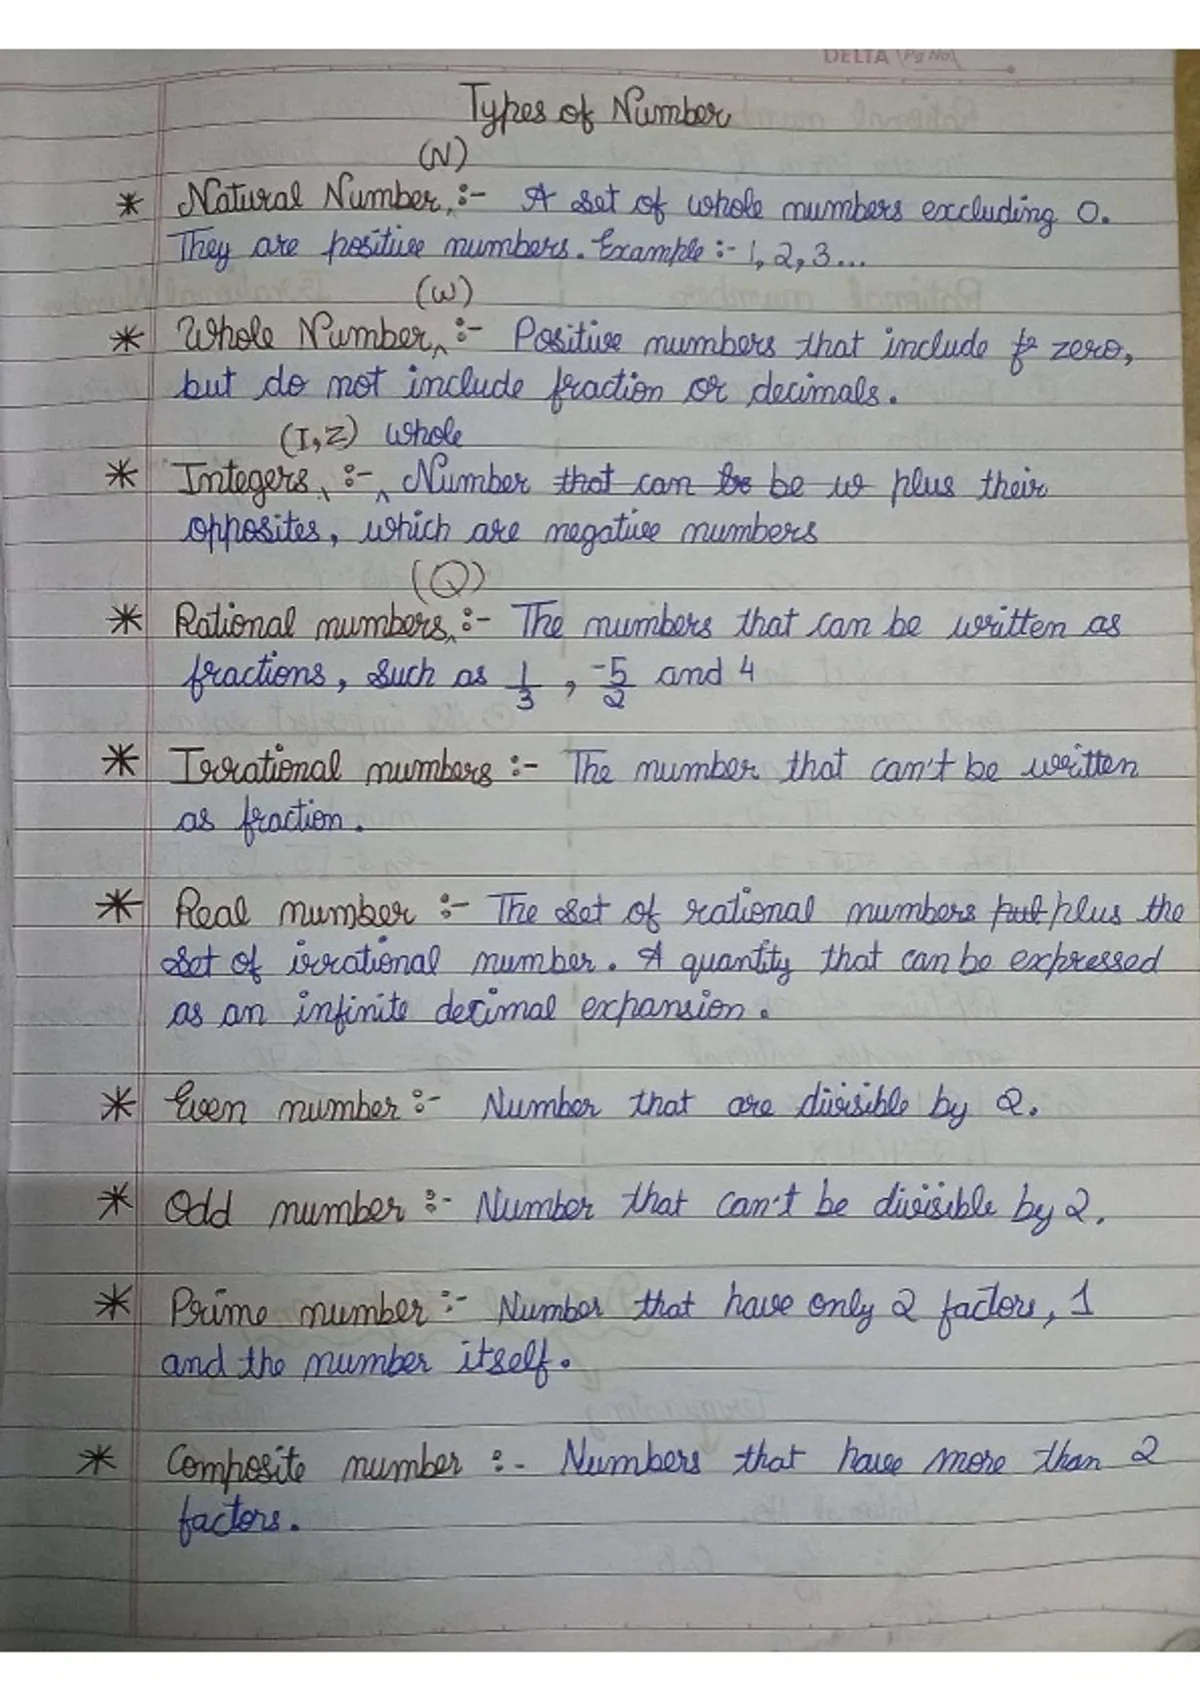 DELTA Pg No.
Types of Number
(N)
* Natural Number :- A set of whole numbers excluding 0.
They are positive numbers. Example :- 1, 2, 3...
(W)
* Whole Number :- Positive numbers that include fr zero,
but do not include fraction or decimals.
(I, Z) whole
* Integers :- Number that can be be w plus their
opposites, which are negative numbers
(Q)
* Rational numbers :- The numbers that can be written as
fractions, such as 1/3, -5/2 and 4
* Irrational numbers :- The number that can't be written
as fraction.
* Real number :- The set of rational numbers put plus the
set of irrational number. A quantity that can be expressed
as an infinite decimal expansion.
* Even number :- Number that are divisible by 2.
* Odd number :- Number that can't be divisible by 2.
* Prime number :- Number that have only 2 factors, 1
and the number itself.
* Composite number :- Numbers that have more than 2
factors.